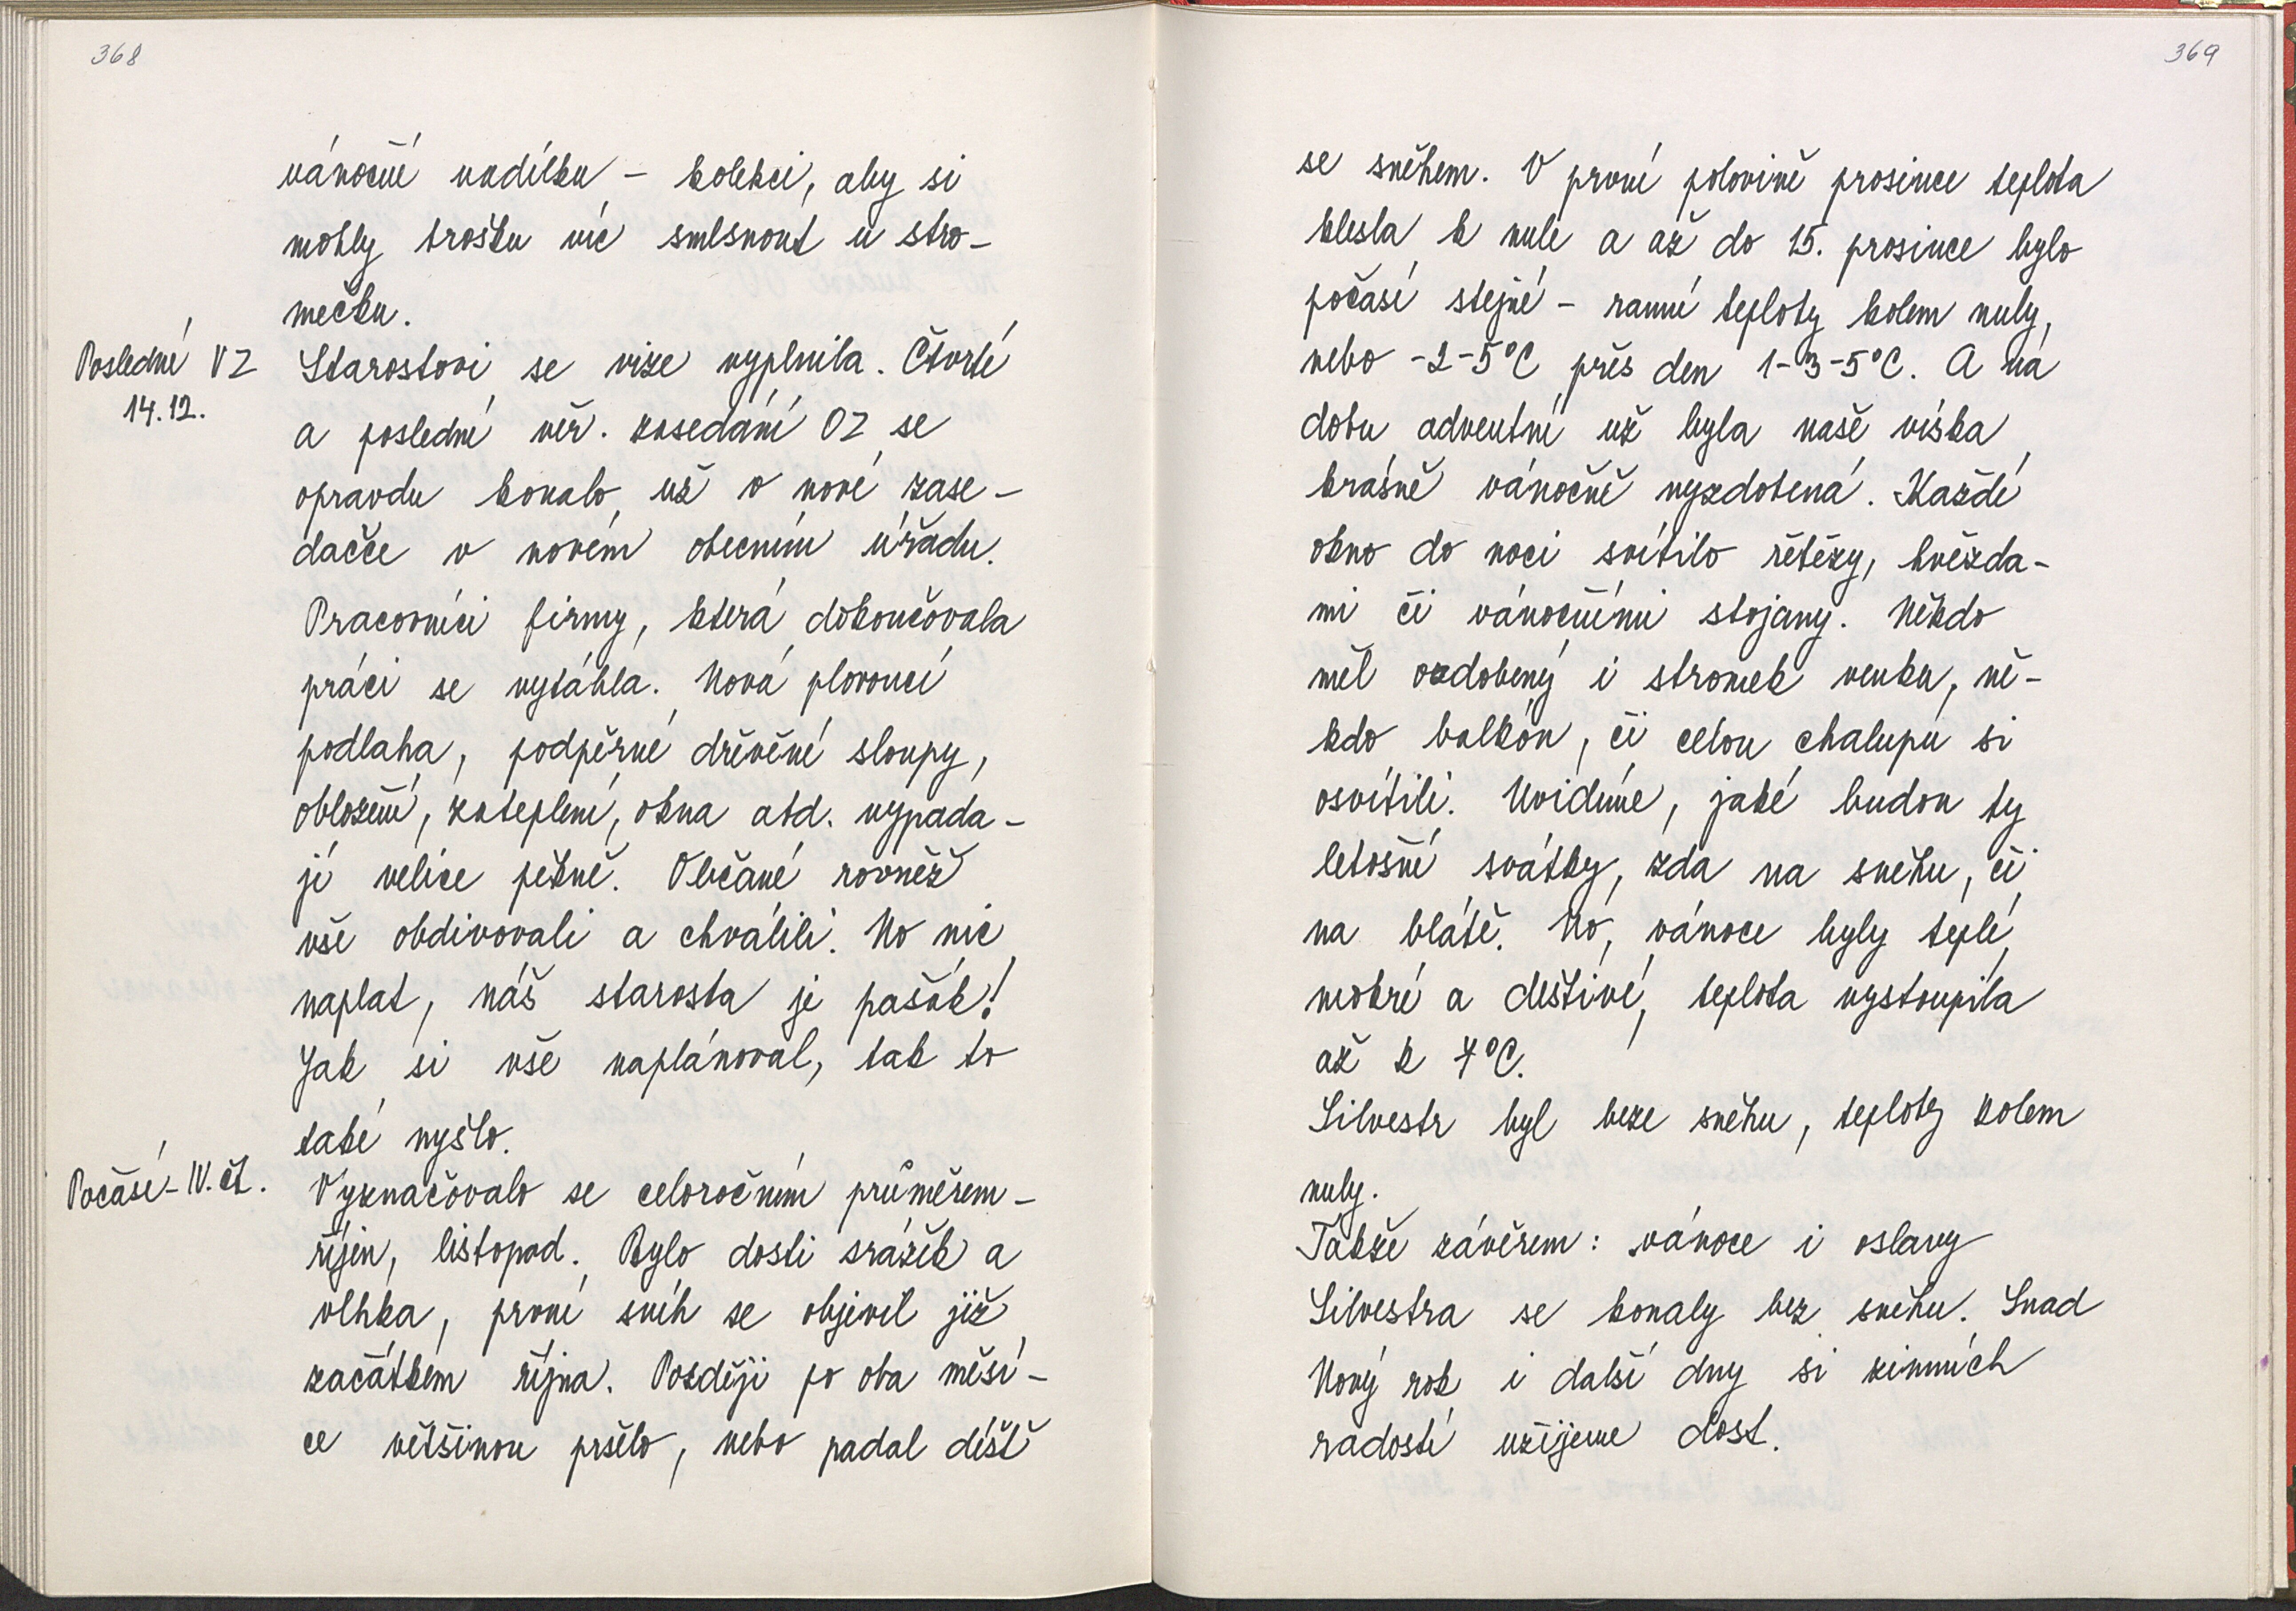 368
vánoční nadílku - kolekci, aby si
mohly trošku víc smlsnout u stro-
mečku.
Poslední VZ
14.12.
Starostovi se vize vyplnila. Čtvrté
a poslední veř. zasedání OZ se
opravdu konalo už v nové zase-
dačče v novém obecním úřadu.
Pracovníci firmy, která dokončovala
práci se vytáhla. Nová plovoucí
podlaha, podpěrné dřevěné sloupy,
obložení, zateplení, okna atd. vypada-
jí velice pěkně. Občané rovněž
vše obdivovali a chválili. No nic
naplat, náš starosta je pašák!
Jak si vše naplánoval, tak to
také vyšlo.
Počasí - IV. čt.
Vyznačovalo se celoročním průměrem -
říjen, listopad. Bylo dosti srážek a
vlhka, první sníh se objevil již
začátkem října. Později po oba měsí-
ce většinou pršelo, nebo padal déšť
369
se sněhem. V první polovině prosince teplota
klesla k nule a až do 15. prosince bylo
počasí stejné - ranní teploty kolem nuly,
nebo -2-5°C přes den 1-3-5°C. A na
dobu adventní už byla naše víska
krásně vánočně vyzdobená. Každé
okno do noci svítilo řetězy, hvězda-
mi či vánočními stojany. Někdo
měl ozdobený i stromek venku, ně-
kdo balkón, či celou chalupu si
osvítili. Uvidíme, jaké budou ty
letošní svátky, zda na sněhu, či
na blátě. No, vánoce byly teplé,
mokré a deštivé, teplota vystoupila
až k 7°C.
Silvestr byl beze sněhu, teploty kolem
nuly.
Takže závěrem: vánoce i oslavy
Silvestra se konaly bez sněhu. Snad
Nový rok i další dny si zimních
radostí užijeme dost.